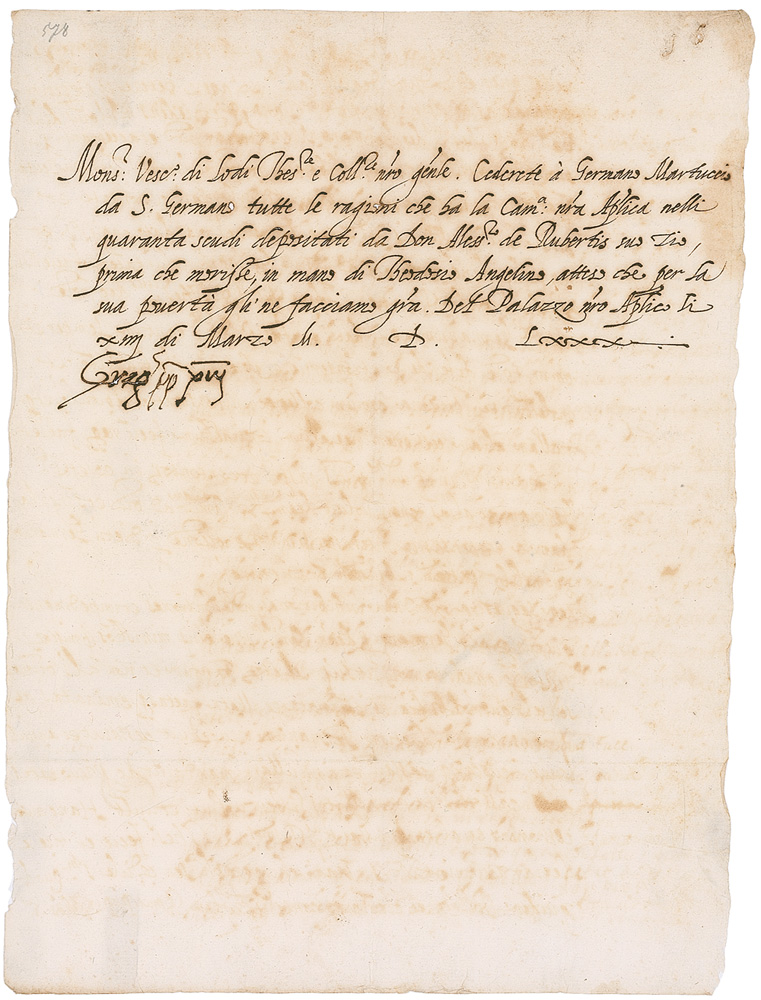 578
Mons.r Vesc.o di Lodi Thes.re e Coll.re nro gnle. Cederete à Germano Martuccio
da S. Germano tutte le ragioni che ha la Cam.a nra Aplica nelli
quaranta scudi depositati da Don Aless.o de Rubertis suo zio,
prima che morisse, in mano di Theodosio Angelino, atteso che per la
sua povertà gli ne facciamo gra. Del Palazzo nro Aplico li
xiiij di Marzo M. D. Lxxx.
Greg pp xiij